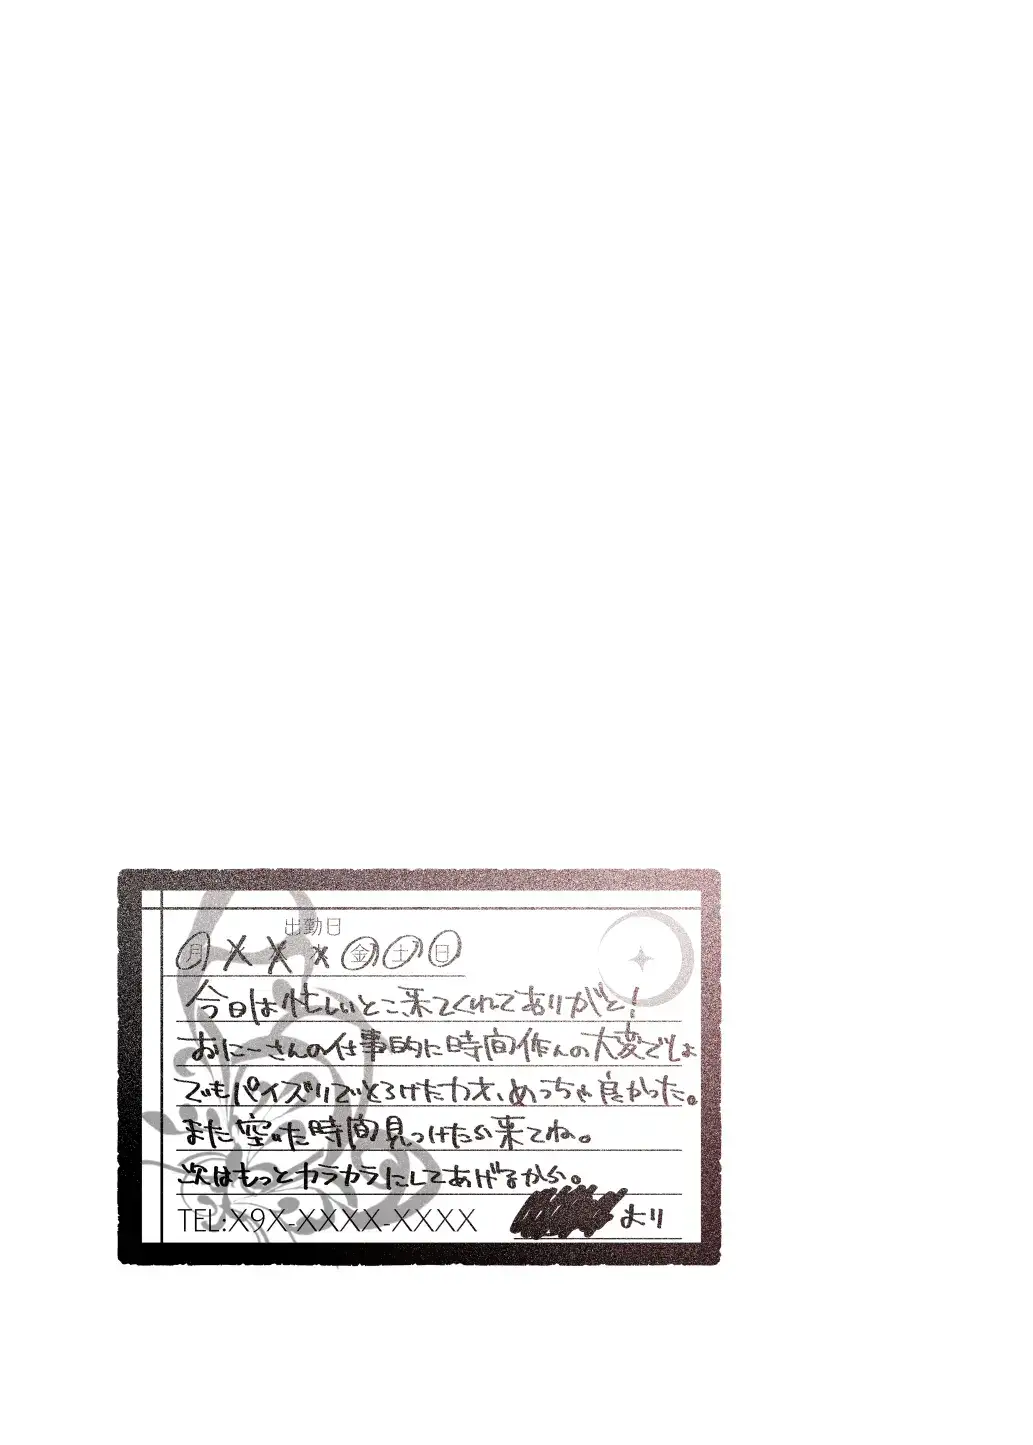 出勤日
月 火 水 木 金 土 日
今日は忙しいとこ来てくれてありがと!
おにーさんの仕事的に時間作んの大変でしょ
でもパイズリでとろけたカオ、めっちゃ良かった。
また空いた時間見つけたら来てね。
次はもっとカラカラにしてあげるから。
TEL:X9X-XXXX-XXXX
より